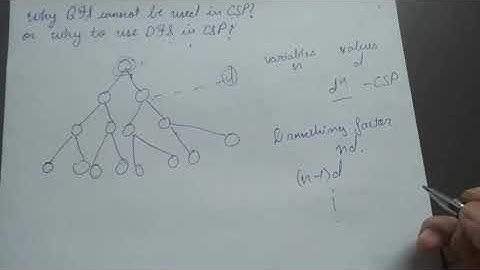 Why BFS cannot be used in CSP?
or why to use DFS in CSP?
variables values
n d
d^n - CSP
d
branching factor
nd.
(n-1)d